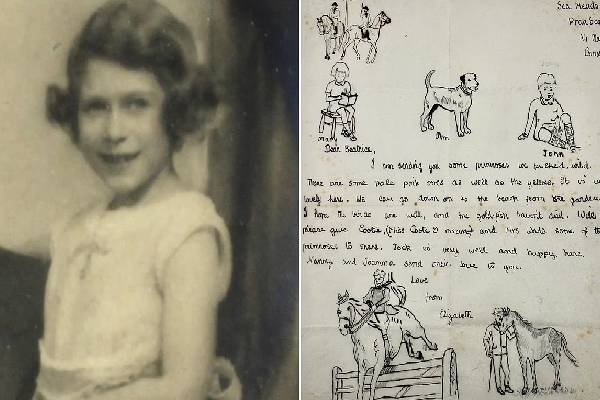 Sea Meads
Mary
Ann
John
Dear Beatrice,
I am sending you some primroses we picked, wild.
There are some pale pink ones as well as the yellow. It is
lovely here. We can go down on to the beach from the garden.
I hope the birds are well, and the goldfish haven't died. Will
please give Coots, (Miss Coots I mean) and Mrs some of the
primroses to share. Jock is very well and happy, here.
and send their love to you.
Love
from
Elizabeth